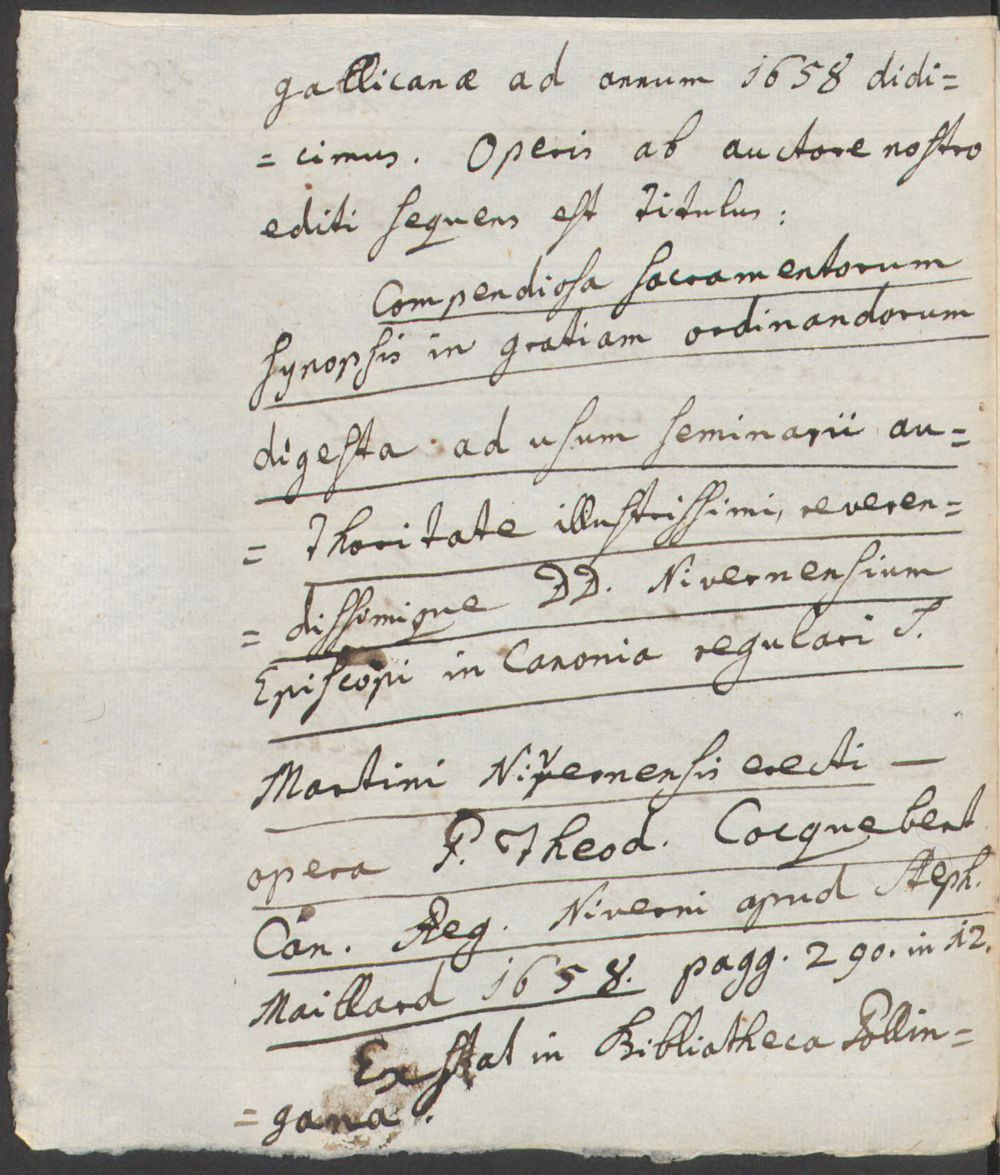 gallicanæ ad annum 1658 didi=
= cimus. Operis ab auctore nostro
editi sequens est Titulus:
Compendiosa sacramentorum
synopsis in gratiam ordinandorum
digesta ad usum seminarii au=
= thoritate illustrissimi, reveren=
= dissimique DD. Nivernensium
Episcopi in Canonia regulari S.
Martini Nivernensis erecti —
opera P. Theod. Cocquebert
Can. Reg. Niverni apud Steph.
Maillard 1658. pagg. 290. in 12.
Exstat in Bibliotheca Polling=
= gana.